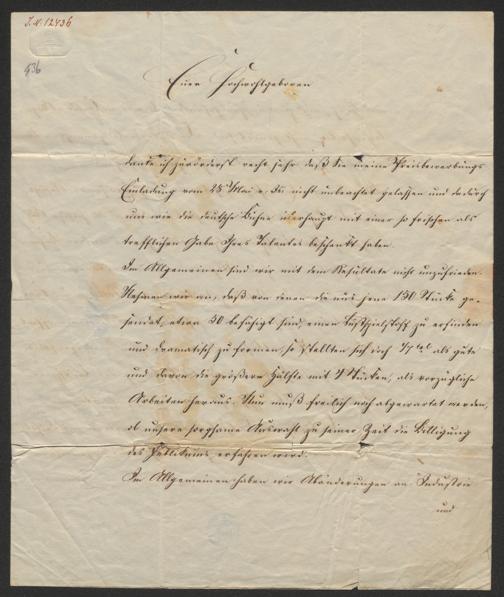 J.N. 12436
436
Euer Hochwohlgeboren
danke ich zuvörderst recht sehr daß Sie meine Preisbewerbungs
Einladung vom 28 Mai nicht unbeachtet gelassen und dadurch
uns wie die deutsche Bühne überhaupt mit einer so frischen als
trefflichen Gabe Ihres Talentes beschenkt haben.
Im Allgemeinen sind wir mit dem Resultate nicht unzufrieden.
Nehmen wir an, daß von jenen die uns jene 130 Stücke ge-
sendet, etwa 30 befähigt sind, einen Lustspielstoff zu erfinden
und dramatisch zu formen so stellten sich doch als gute
und davon die größere Hälfte mit Stücken, als vorzügliche
Arbeiten heraus. Nun muß freilich noch abgewartet werden,
ob unsere sorgsame Auswahl zu seiner Zeit die Billigung
des Publikums erfahren wird.
Im Allgemeinen haben wir Abänderungen an
und